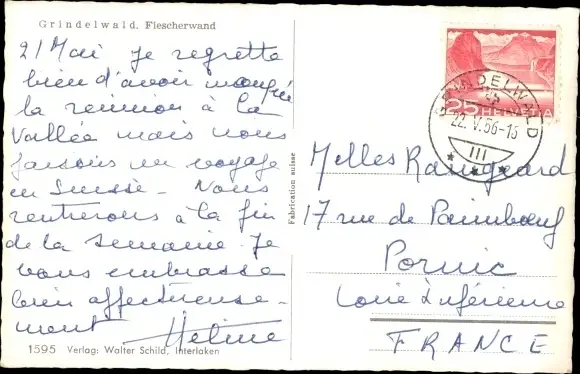 Grindelwald. Fiescherwand
21 Mai je regrette
bien d'avoir manqué
la réunion à la
Vallée mais nous
faisons un voyage
en Suisse - Nous
rentrerons à la fin
de la semaine. Je
vous embrasse
bien affectueuse-
ment Hélène
1595 Verlag: Walter Schild, Interlaken
Fabrication suisse
25 HELVETIA
GRINDELWALD
22.V.56-18
III
Melles Raingeard
17 rue de Paimboeuf
Pornic
Loire Inférieure
FRANCE